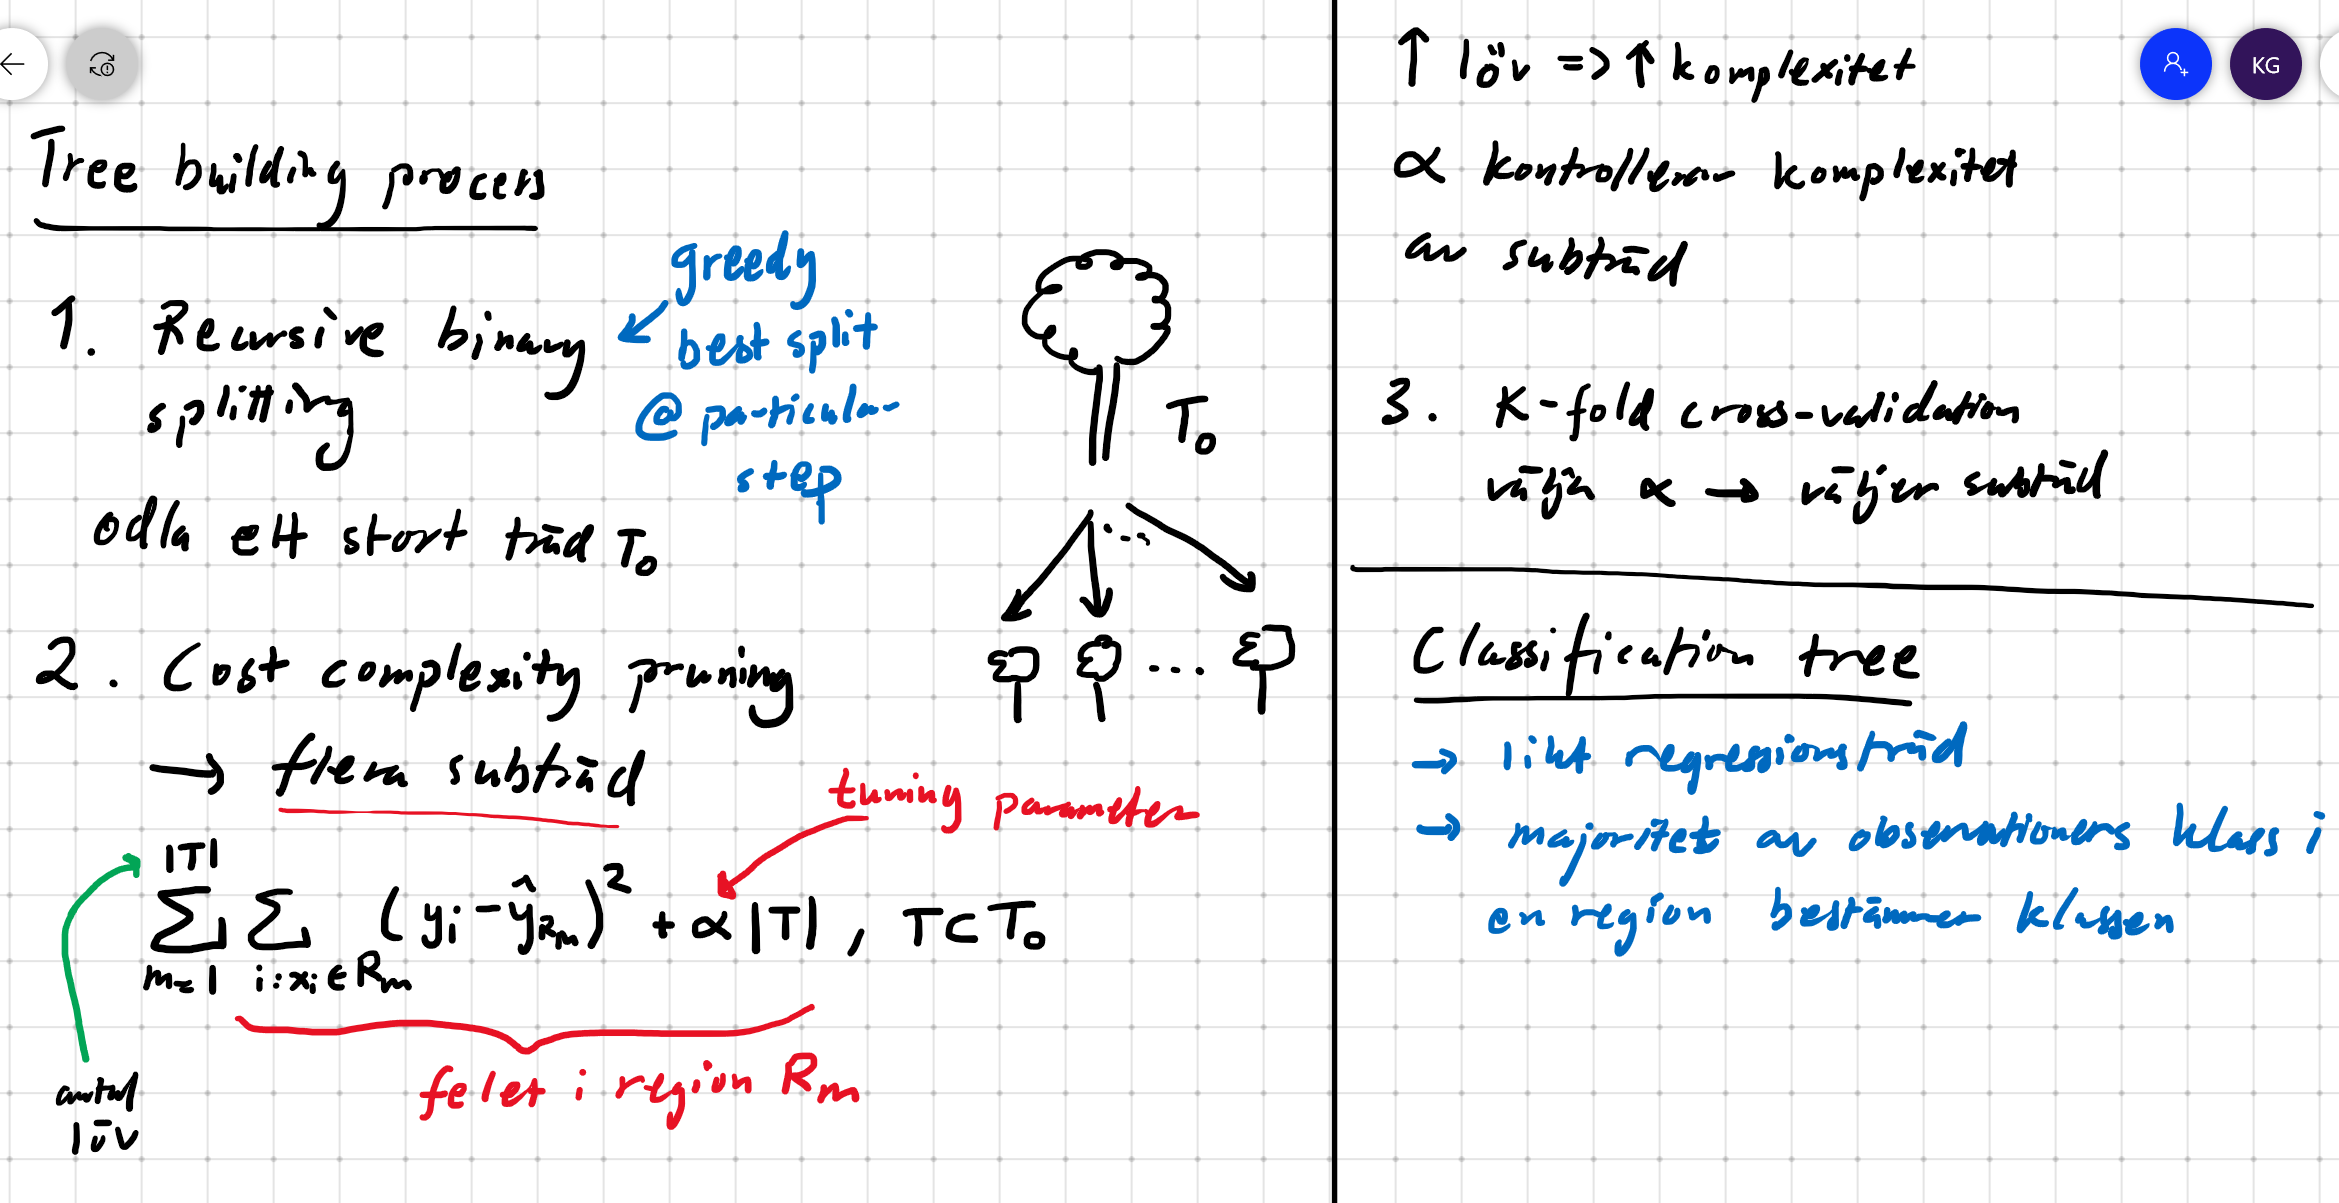 Tree building process
1. Recursive binary
splitting
greedy
best split
@ particular
step
odla ett stort träd T₀
T₀
2. Cost complexity pruning
→ flera subträd
tuning parameter
|T|
∑ ∑ (yᵢ - ŷ_Rₘ)² + α|T| , T ⊂ T₀
m=1 i:xᵢ∈Rₘ
felet i region Rₘ
antal
löv
↑ löv => ↑ komplexitet
α kontrollerar komplexitet
av subträd
3. K-fold cross-validation
välja α → väljer subträd
Classification tree
→ likt regressionsträd
→ majoritet av observationers klass i
en region bestämmer klassen
KG